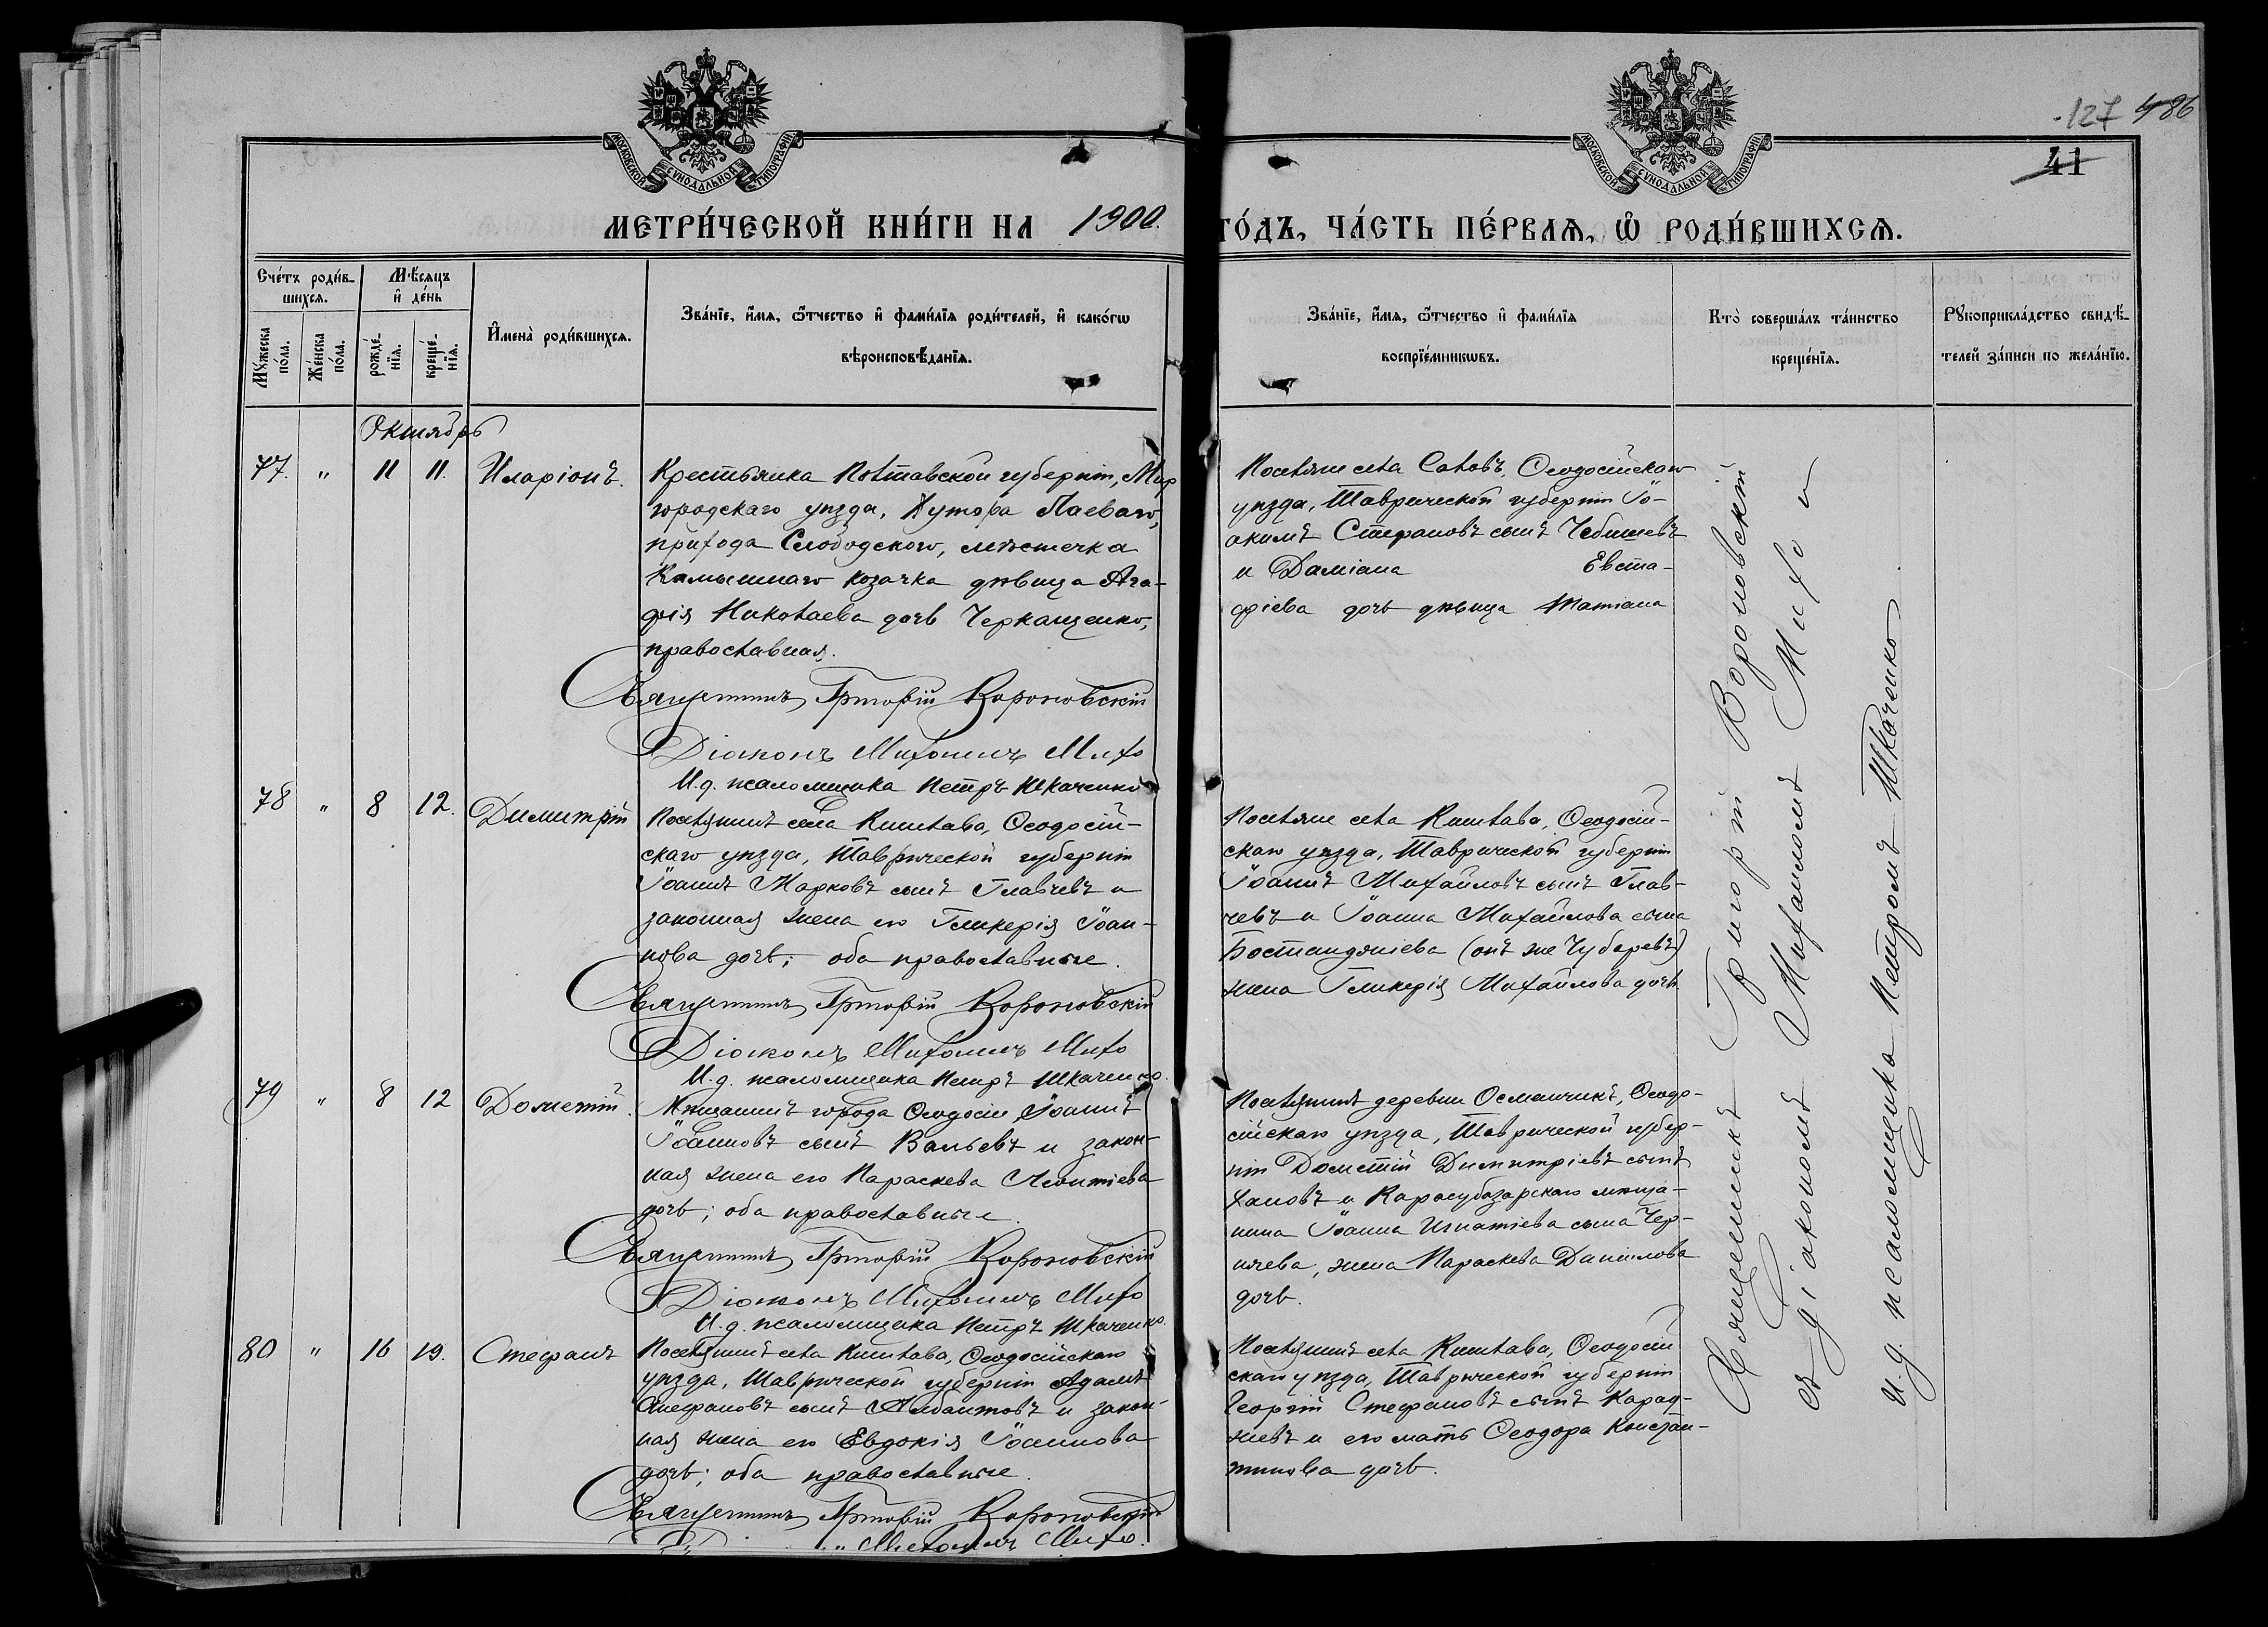 127 486
41
МОСКОВСКОЙ СѴНОДАЛЬНОЙ ТИПОГРАФІИ
МОСКОВСКОЙ СѴНОДАЛЬНОЙ ТИПОГРАФІИ
МЕТРИ́ЧЕСКОЙ КНИ́ГИ НА 1900. ГО́ДЪ, ЧА́СТЬ ПЕ́РВАЯ, Ѡ РОДИ́ВШИХСЯ.
Сче́тъ роди́в-
шихся.
Мѣ́сяцъ
и де́нь
Му́жеска по́ла.
Же́нска по́ла.
рожде́-
нїя.
креще́-
нїя.
Имена̀ роди́вшихся.
Зва́нїе, и́мя, ѻ́тчество и фами́лїя роди́телей, и како́гѡ
вѣроисповѣ́данїя.
Зва́нїе, и́мя, ѻ́тчество и фами́лїя
воспрїе́мникѡвъ.
Кто̀ соверша́лъ та́инство
креще́нїя.
Рукоприкла́дство свидѣ́-
телей за́писи по жела́нїю.
Октябрь
77. " 11 11. Иларіонъ.
Крестьянка Полтавской губерніи, Мир
городскаго уѣзда, Хутора Паеваго,
прихода Слободскаго, мѣстечка
Камышнаго козачка дѣвица Ага-
фія Николаева дочь Черкащенко,
православная.
Священникъ Григорій Вороновскій
Діаконъ Михаилъ Михо
И.д. псаломщика Петръ Ткаченко
Поселяне села Саловъ, Ѳеодосійскаго
уѣзда, Таврической губерніи Іо-
акимъ Стефановъ сынъ Чебышевъ
и Даміана Евста-
фіева дочь дѣвица Татіана
78 " 8 12. Димитрій
Поселянинъ села Кишлава, Ѳеодосій-
скаго уѣзда, Таврической губерніи
Іоаннъ Марковъ сынъ Главчевъ и
законная жена его Гликерія Іоан-
нова дочь; оба православные.
Священникъ Григорій Вороновскій
Діаконъ Михаилъ Михо
И.д. псаломщика Петръ Ткаченко.
Поселяне села Кишлава, Ѳеодосій-
скаго уѣзда, Таврической губерніи
Іоаннъ Михайловъ сынъ Глав-
чевъ и Іоанна Михайлова сына
Бостанджіева (онъ же Чубаревъ)
жена Гликерія Михайлова дочь
79 " 8 12 Дометій.
Мѣщанинъ города Ѳеодосіи Іоаннъ
Іоанновъ сынъ Вальевъ и закон-
ная жена его Параскева Леонтіева
дочь; оба православные.
Священникъ Григорій Вороновскій
Діаконъ Михаилъ Михо
И.д. псаломщика Петръ Ткаченко.
Поселянинъ деревни Османчикъ, Ѳеодо-
сійскаго уѣзда, Таврической губер-
ніи Дометій Димитріевъ сынъ
Хановъ и Карасубазарскаго мѣща-
нина Іоанна Игнатіева сына Чер-
нячева, жена Параскева Даніилова
дочь.
80 " 16 19. Стефанъ
Поселянинъ села Кишлава, Ѳеодосійскаго
уѣзда, Таврической губерніи Адамъ
Стефановъ сынъ Албантовъ и закон-
ная жена его Евдокія Іоаннова
дочь; оба православные.
Священникъ Григорій Вороновскій
Михаилъ Михо.
Поселянинъ села Кишлава, Ѳеодосій
скаго уѣзда, Таврической губерніи
Георгій Стефановъ сынъ Карад-
жевъ и его мать Ѳеодора Констан-
тинова дочь.
Священникъ Григорій Вороновскій
съ діакономъ Михаиломъ Михо и
и.д. псаломщика Петромъ Ткаченко